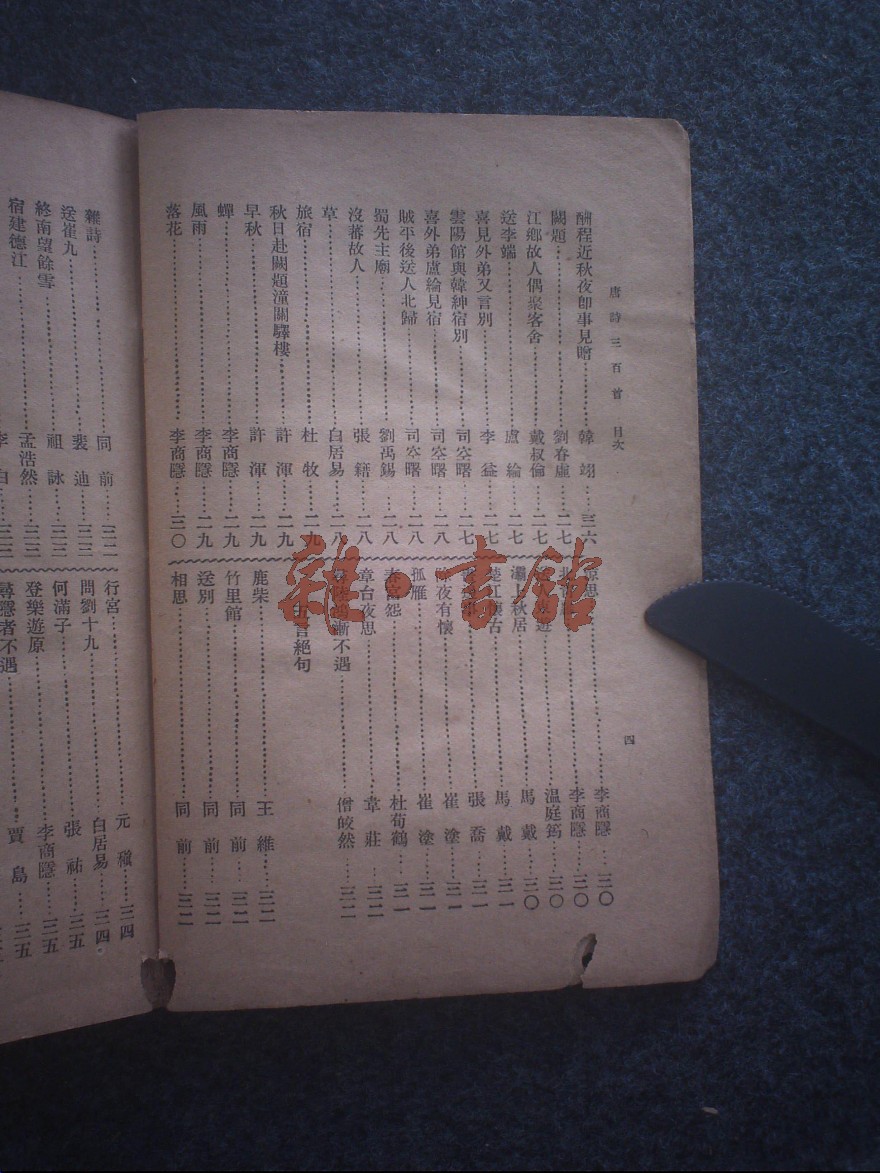 唐詩三百首 目次
酬程近秋夜卽事見贈……韓翃……二六
闕題……劉眘虛……二七
江鄉故人偶聚客舍……戴叔倫……二七
送李端……盧綸……二七
喜見外弟又言別……李益……二七
雲陽館與韓紳宿別……司空曙……二七
喜外弟盧綸見宿……司空曙……二八
賊平後送人北歸……司空曙……二八
蜀先主廟……劉禹錫……二八
沒蕃故人……張籍……二八
草……白居易……二八
旅宿……杜牧……二九
秋日赴闕題潼關驛樓……許渾……二九
早秋……許渾……二九
蟬……李商隱……二九
風雨……李商隱……二九
落花……李商隱……三〇
思……李商隱……三〇
北……李商隱……三〇
……溫庭筠……三〇
灞上秋居……馬戴……三〇
楚江懷古……馬戴……三一
……張喬……三一
夜有懷……崔塗……三一
孤雁……崔塗……三一
春宮怨……杜荀鶴……三一
章台夜思……韋莊……三二
漸不遇……僧皎然……三二
五言絕句
鹿柴……王維……三二
竹里館……同前……三二
送別……同前……三二
相思……同前……三二
四
雜詩……同前……三二
送崔九……裴迪……三三
終南望餘雪……祖詠……三三
宿建德江……孟浩然……三三
行宮……元稹……三四
問劉十九……白居易……三四
何滿子……張祜……三五
登樂遊原……李商隱……三五
尋隱者不遇……賈島……三五
雜·書館